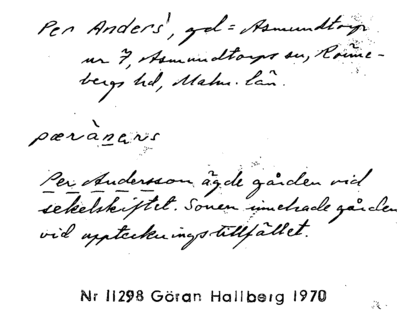 Per Anders', gd = Asmundtorp
nr 7, Asmundtorps sn, Rönne-
bergs hd, Malm. län.
pæràna̲rs
Per Andersson ägde gården vid
sekelskiftet. Sonen innehade gården
vid uppteckningstillfället.
Nr 11298 Göran Hallberg 1970